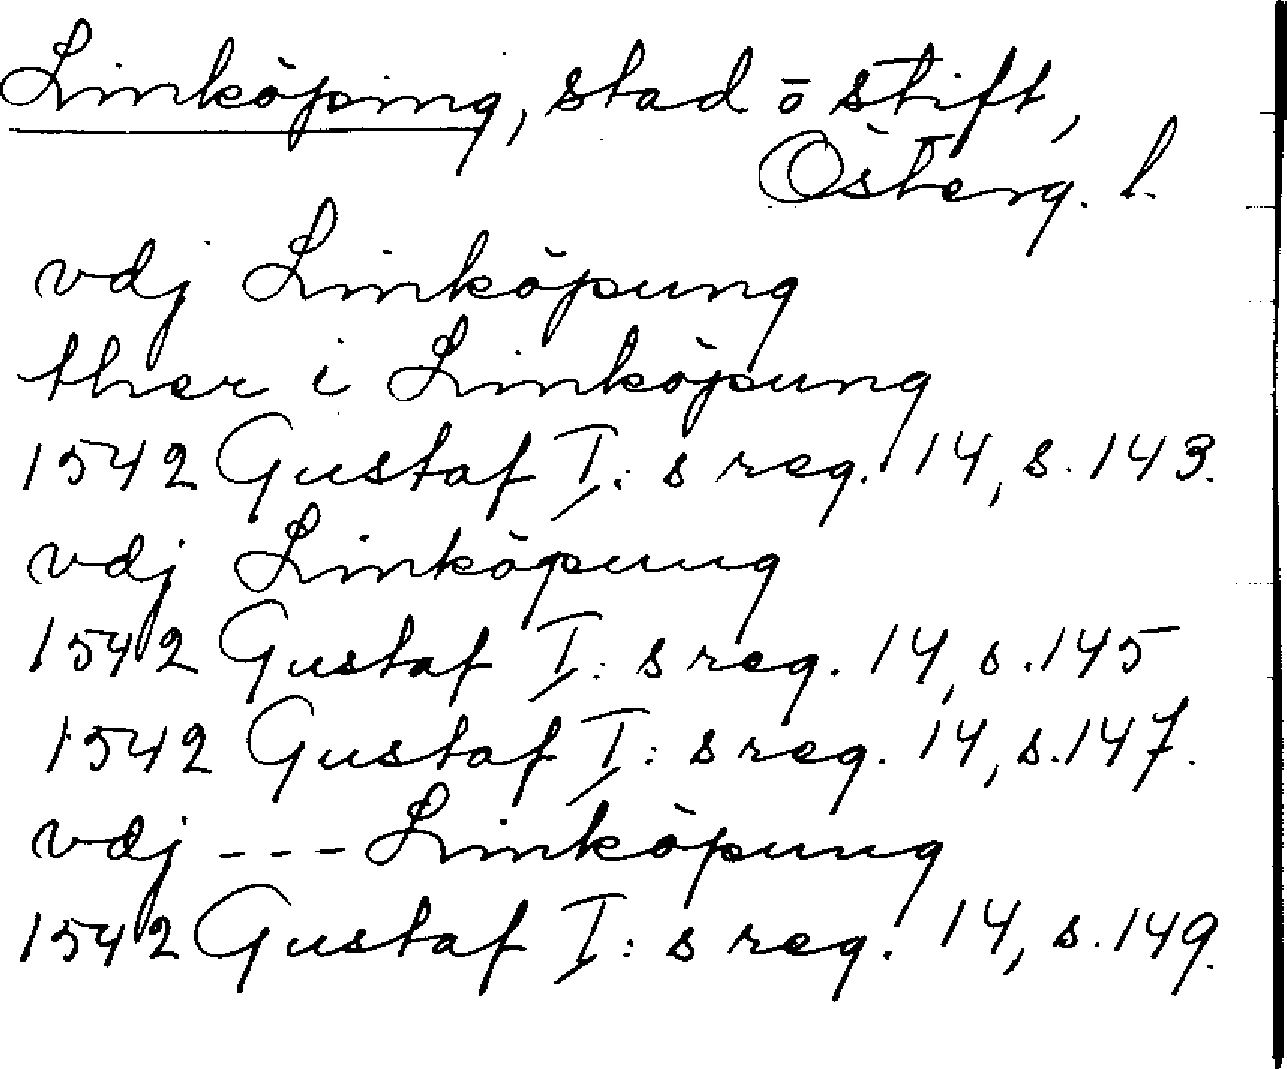 Linköping, stad ō stift,
Österg. l.
vdj Linköpung
ther i Linköpung
1542 Gustaf I: s reg. 14, s. 143.
vdj Linköpung
1542 Gustaf I: s reg. 14, s. 145
1542 Gustaf I: s reg. 14, s. 147.
vdj --- Linköpung
1542 Gustaf I: s reg. 14, s. 149.